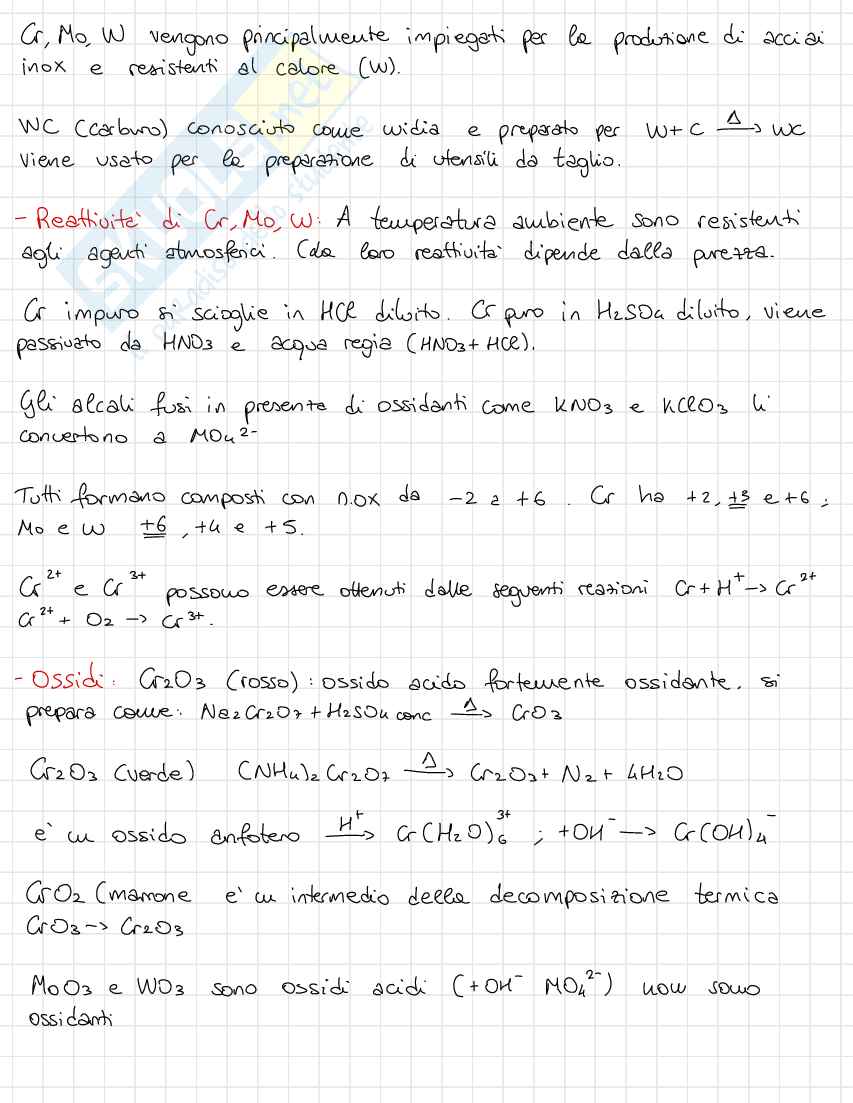 Cr, Mo, W vengono principalmente impiegati per la produzione di acciai
inox e resistenti al calore (W).
WC (carburo) conosciuto come widia e preparato per W + C —Δ→ WC
viene usato per la preparazione di utensili da taglio.
- Reattività di Cr, Mo, W: A temperatura ambiente sono resistenti
agli agenti atmosferici. (da loro reattività dipende dalla purezza.
Cr impuro si scioglie in HCl diluito. Cr puro in H2SO4 diluito, viene
passivato da HNO3 e acqua regia (HNO3 + HCl).
Gli alcali fusi in presenza di ossidanti come KNO3 e KClO3 li
convertono a MO4²⁻
Tutti formano composti con n.ox da -2 a +6. Cr ha +2, +3 e +6;
Mo e W +6, +4 e +5.
Cr²⁺ e Cr³⁺ possono essere ottenuti dalle seguenti reazioni Cr + H⁺ -> Cr²⁺
Cr²⁺ + O2 -> Cr³⁺.
- Ossidi: Cr2O3 (rosso): ossido acido fortemente ossidante. si
prepara come: Na2Cr2O7 + H2SO4 conc —Δ→ CrO3
Cr2O3 (verde) (NH4)2Cr2O7 —Δ→ Cr2O3 + N2 + 4H2O
e' un ossido anfotero —H⁺→ Cr(H2O)6³⁺ ; +OH⁻ -> Cr(OH)4⁻
CrO2 (marrone e' un intermedio della decomposizione termica
CrO3 -> Cr2O3
MoO3 e WO3 sono ossidi acidi (+OH⁻ MO4²⁻) non sono
ossidanti
SKUOLA.net
il paradiso dello studente